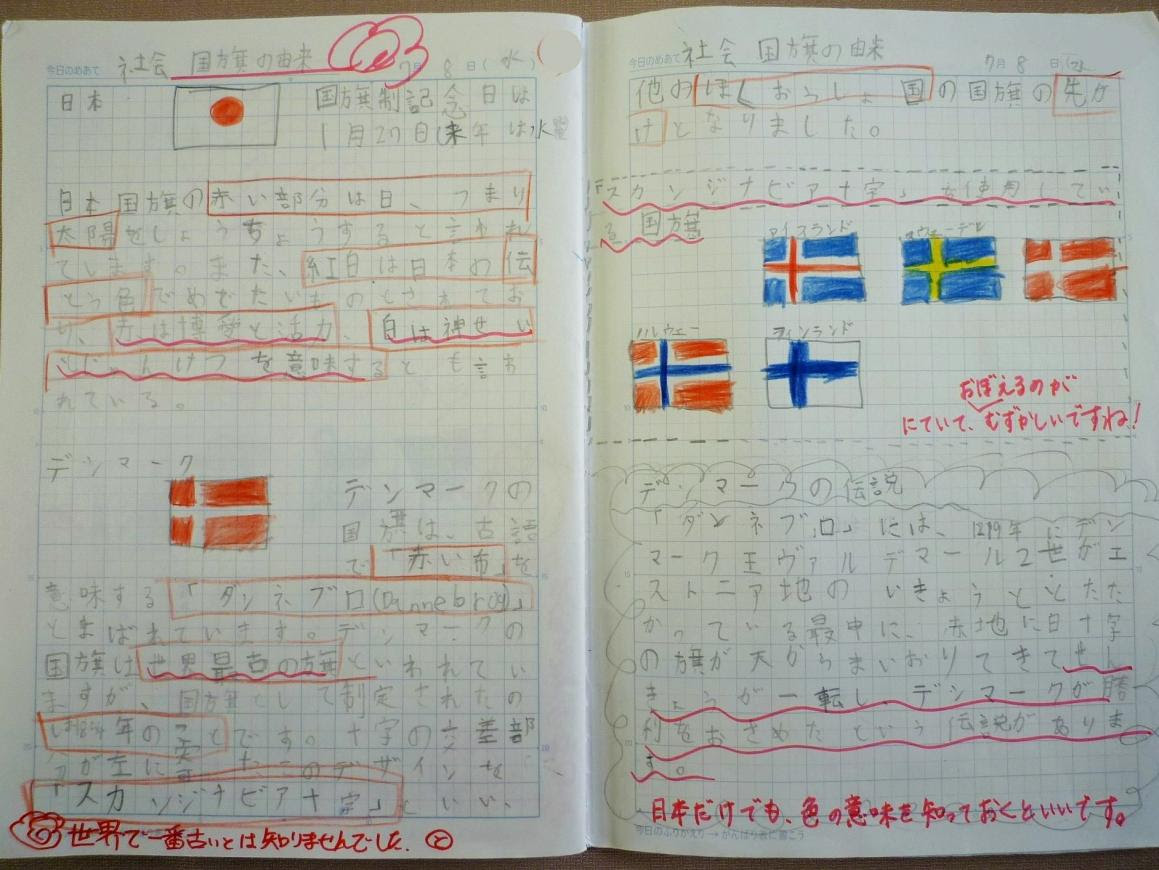 今日のめあて 社会 国旗の由来 7月8日(水)
日本
国旗制記念日は
1月27日(来年は水曜
日本国旗の赤い部分は日、つまり
太陽をしょうちょうすると言われ
ています。また、紅白は日本の伝
とう色でめでたいものとされてお
り、赤は博愛と活力、白は神せい
とじゅんけつを意味するとも言わ
れている。
デンマーク
デンマークの
国旗は、古語
で「赤い布」を
意味する「ダンネブロ(Dannebrog)」
とよばれています。デンマークの
国旗は世界最古の旗といわれてい
ますが、国旗として制定されたの
年の事です。十字の交差部
分が左に寄ったこのデザインを
「スカンジナビア十字」といい、
世界で一番古いとは知りませんでした。
今日のめあて 社会 国旗の由来 7月8日(水
他のほくおうしょ国の国旗の先が
けとなりました。
「スカンジナビア十字」を使用してい
る国旗
アイスランド
スウェーデン
ノルウェー
フィンランド
おぼえるのが
にていて、むずかしいですね!
デンマークの伝説
「ダンネブロ」には、1219年にデン
マーク王ヴァルデマール2世がエ
ストニア地のいきょうととたた
かっている最中に、赤地に白十字
の旗が天からまいおりてきてせん
きょうが一転し、デンマークが勝
利をおさめたという伝説がありま
す。
日本だけでも、色の意味を知っておくといいです。
今日のふりかえり→がんばり表に書こう